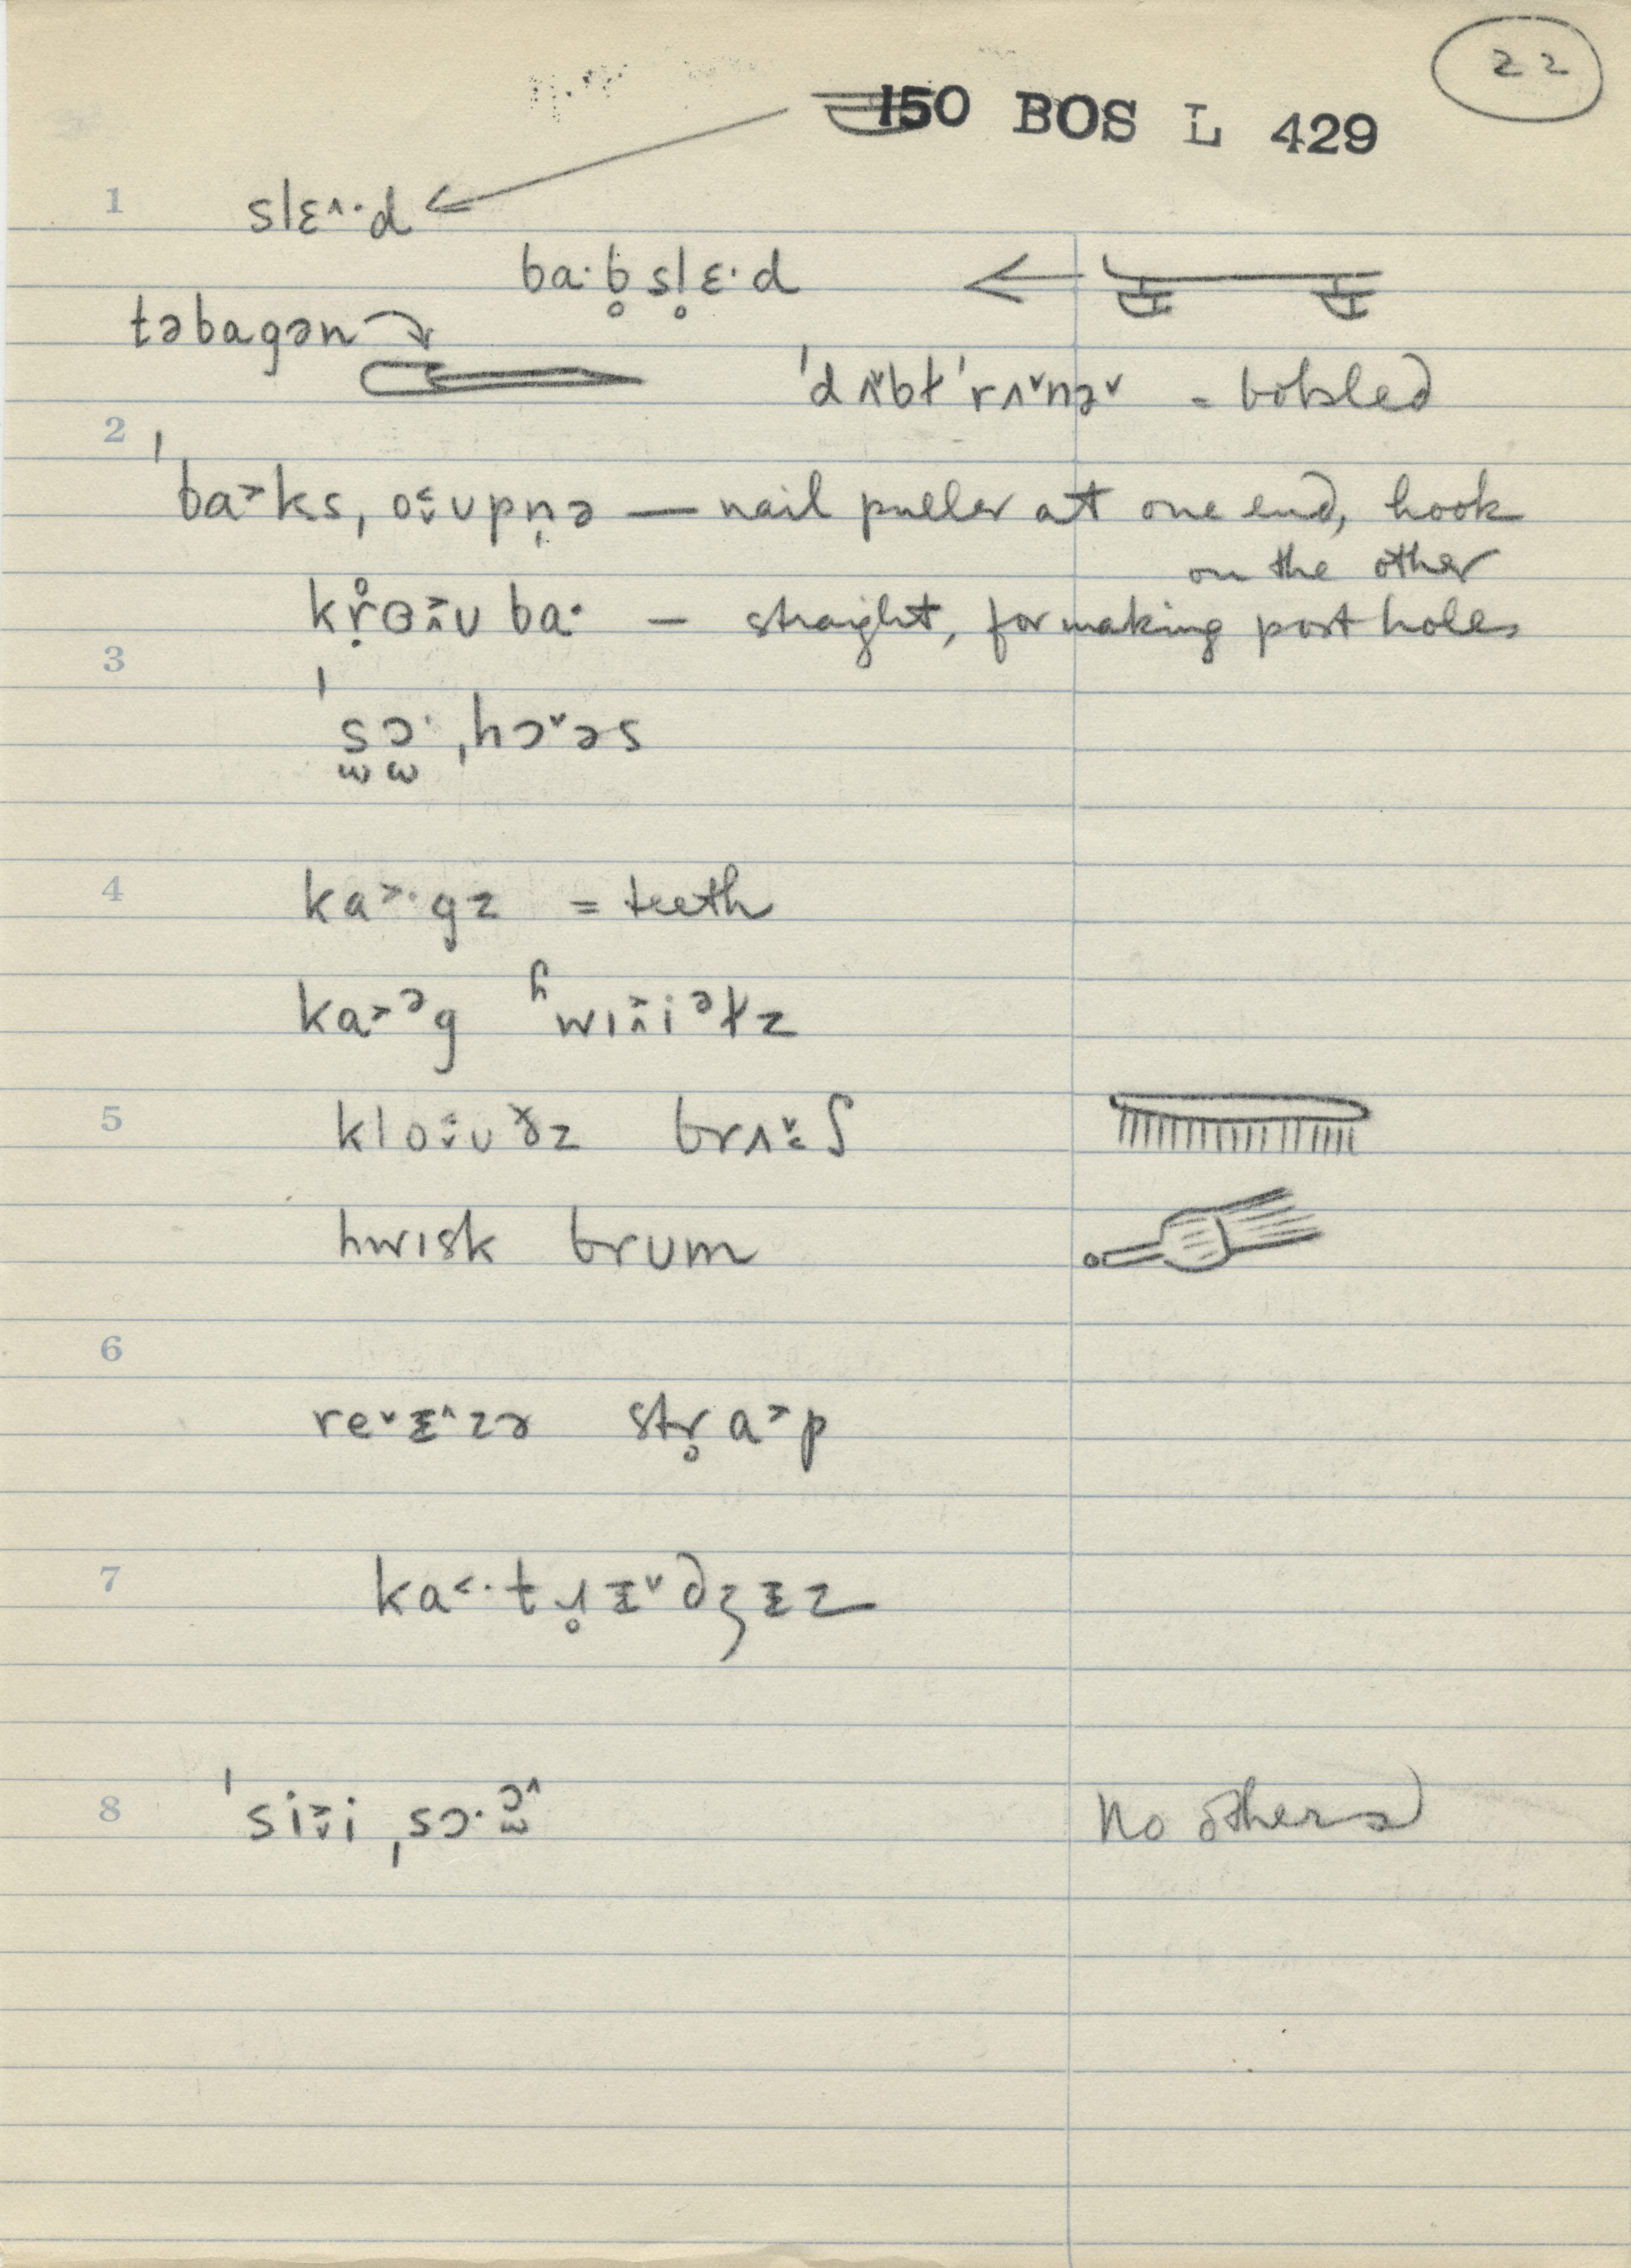 22
150 BOS L 429
1 slɛ^·d
ba·b̥sl̥ɛ·d
təbagən
ˈdʌ˅bɫˈrʌ˅nə˅ = bobsled
2
ˈba˃ks, oʊpn̩ə — nail puller at one end, hook
on the other
kr̥oʊ ba· — straight, for making post holes
3
ˈs̫ɔ̫· ˌhɔ˅əs
4 ka˃·gz = teeth
ka˃ᵊg ʰwɪiᵊɫz
5 kloʊðz brʌʃ
hwɪsk brum
6
re˅ɪ^zə str̥a˃p
7 ka˂·tr̥ɪ˅dʒɪz
8 ˈsii ˌsɔ·ɔ̫^ No others